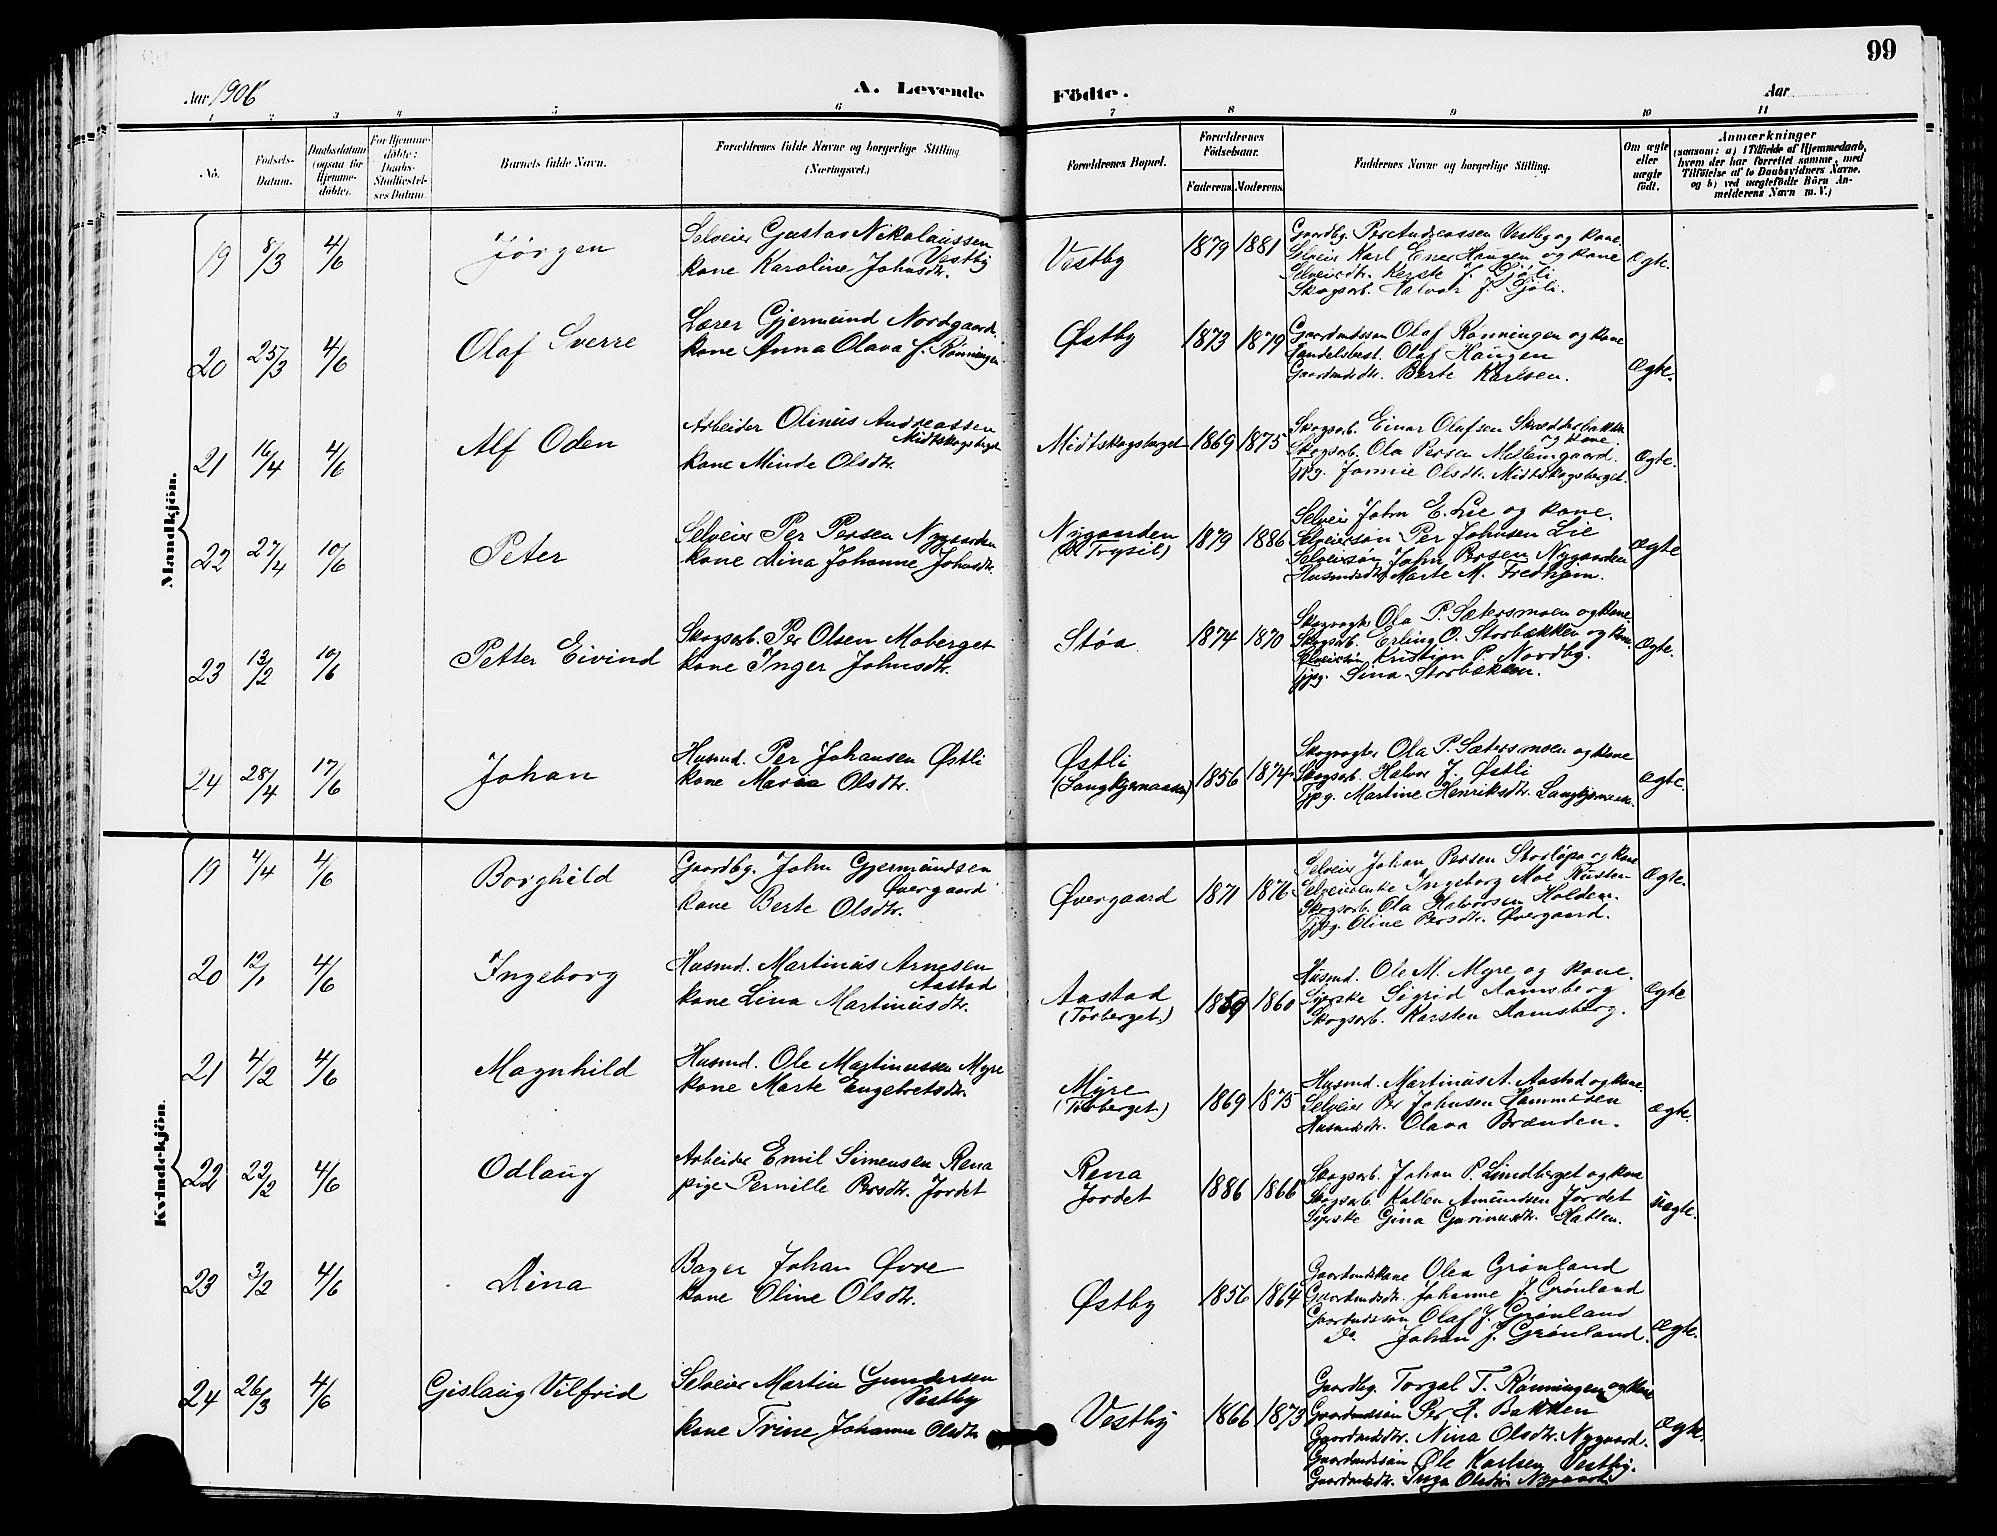 99
Aar 1906
A. Levende Födte.
Aar
1 2 3 4 5 6 7 8 9 10 11
No.
Födsels-
Datum.
Daabsdatum
(ogsaa for
Hjemme-
döbte).
For Hjemme-
döbte:
Daabs-
Stadfæstel-
ses Datum.
Barnets fulde Navn.
Forældrenes fulde Navne og borgerlige Stilling
(Næringsvei.)
Forældrenes Bopæl.
Forældrenes
Födselsaar.
Faderens. Moderens.
Faddernes Navne og borgerlige Stilling.
Om ægte
eller
uægte
födt.
Anmærkninger
(saasom: a) i Tilfælde af Hjemmedaab,
hvem der har forrettet samme, med
Tilföielse af to Daabsvidners Navne,
og b) ved uægtefödte Börn An-
melderens Navn m. V.)
Mandkjön.
19 8/3 4/6 Jörgen
Selveier Gustav Nikolaussen
Vestby
kone Karoline Johnsdtr.
Vestby 1879 1881
Gaardbg. Per Andreassen Vestby og kone
Selveier Karl Ener Haugen og kone
Selveierdtr. Kerste J. Sjöli
Skogsarb. Halvor J. Sjöli.
Ægte.
20 25/3 4/6 Olaf Sverre
Lærer Gjermund Nordgaard.
kone Anna Olava f. Rönningen
Østby 1873 1879
Gaardmdssøn Olaf Rønningen og kone
Handelsbest. Olaf Haugen
Gaardmdsdtr. Berte Karlsen.
Ægte.
21 16/4 4/6 Alf Oden
Arbeider Olinus Andreassen
Midtskogsberget
kone Minda Olsdtr.
Midtskogsberget 1869 1875
Skogsarb. Einar Olafsen Skrædderbakken
og kone.
Skogsarb. Ola Persen Mellemgaard.
Tjpg. Jannie Olsdtr. Midtskogsberget.
Ægte.
22 27/4 10/6 Peter
Selveier Per Persen Nygaarden
kone Dina Johanne Johnsdtr.
Nygaarden
(Trysil) 1879 1886
Selveier John E. Lie og kone.
Selveiersøn Per Johnsen Lie
Selveiersøn John Persen Nygaarden
Husmdsdtr. Marte M. Fredhjem.
Ægte
23 13/2 10/6 Petter Eivind
Skogsarb. Per Olsen Moberget
kone Inger Johnsdtr.
Støa 1874 1870
Skogvogter Ola P. Sætersmoen og kone.
Skogsarb. Erling O. Storbækken og kone.
Selveiersøn Kristian P. Nordby.
Tjpg. Sina Storbækken.
Ægte.
24 28/4 17/6 Johan
Husmd. Per Johansen Østli
kone Maria Olsdtr.
Østli
(Langkjernaasen) 1856 1874
Skogvogter Ola P. Sætersmoen og kone
Skogsarb. Halvor J. Østli
Tjpg. Martine Henriksdtr. Langkjernaasen.
Ægte.
Kvindekjön.
19 4/4 4/6 Borghild
Gaardbg. John Gjermundsen
Øvergaard
kone Berte Olsdtr.
Øvergaard 1871 1876
Selveier Johan Persen Storløpa og kone
Selveierenke Ingeborg Moe Rusten
Skogsarb. Ola Halvorsen Holden.
Tjpg. Oline Persdtr. Øvergaard.
Ægte.
20 12/1 4/6 Ingeborg
Husmd. Martinus Arnesen
Aastad
kone Lina Martinusdtr.
Aastad
(Törberget.) 1859 1860
Husmd. Ole M. Myre og kone.
Syerske Sigrid Damsberg
Skogsarb. Karsten Damsberg.
Ægte
21 4/2 4/6 Magnhild
Husmd. Ole Martinussen Myre
kone Marte Engebretsdtr.
Myre
(Törberget) 1869 1875
Husmd. Martinus A. Aastad og kone.
Selveier Per Johnsen Hammeren
Husmdsdtr. Olava Brænden.
Ægte.
22 22/2 4/6 Odlaug
Arbeider Emil Simensen Rena
pige Pernille Persdtr. Jordet
Rena
Jordet 1886 1866
Skogsarb. Johan P. Lundberget og kone
Skogsarb. Kallen Amundsen Jordet
Syerske Gina Gurinusdtr. Hatlen.
uægte.
23 3/2 4/6 Dina
Bager Johan Øvre
kone Oline Olsdtr.
Østby 1856 1864
Gaardmdskone Olea Grönland
Gaardmdsdtr. Johanne J. Grönland
Gaardmdssøn Olaf J. Grönland
Do. Johan J. Grönland.
Ægte.
24 26/3 4/6 Gislaug Vilfrid
Selveier Martin Gundersen
Vestby
kone Trine Johanna Olsdtr
Vestby 1866 1873
Gaardbg. Torgal T. Rønningen og kone
Gaardmdssøn Per H. Bakken
Gaardmdsdtr. Nina Olsdtr. Nygaard.
Gaardmdssøn Ole Karlsen Vestby.
Gaardmdsdtr. Inga Olsdtr Nygaard.
Ægte.